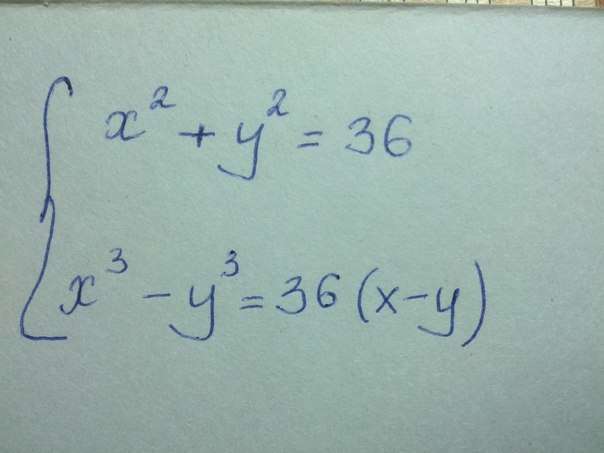 x² + y² = 36
x³ - y³ = 36 (x-y)